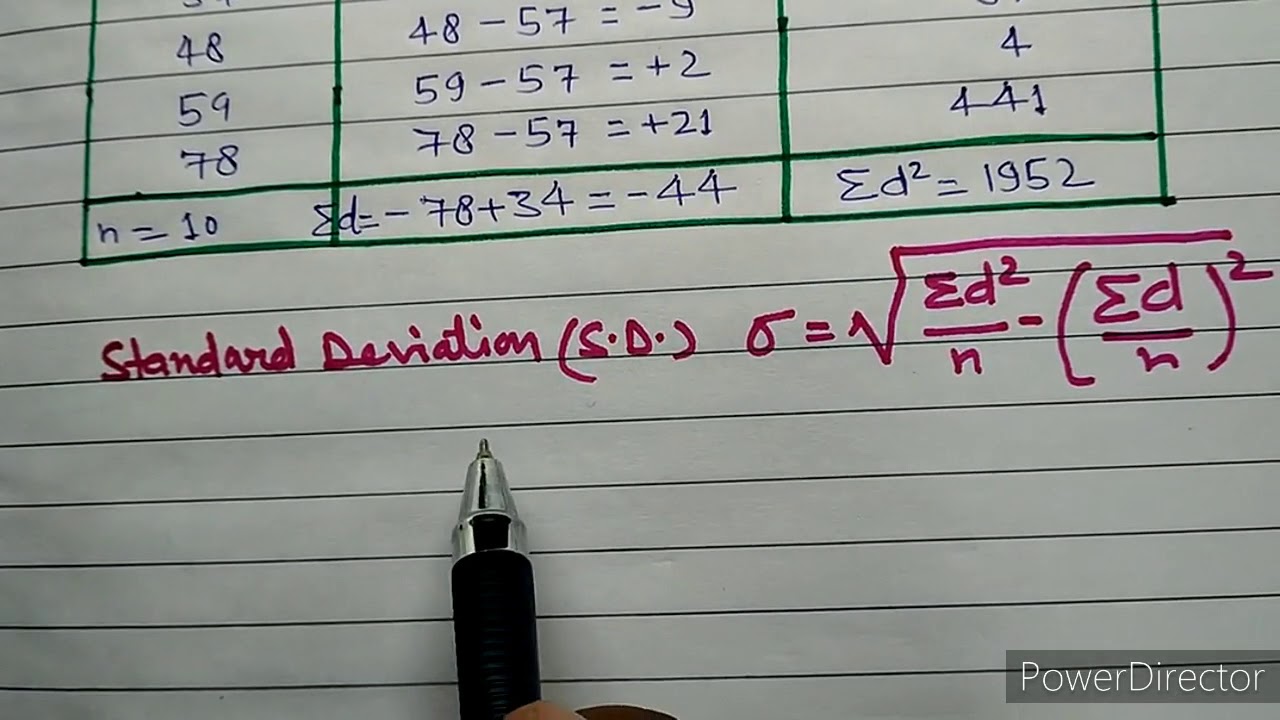 48 48 - 57 = -9
59 59 - 57 = +2 4
78 78 - 57 = +21 441
n = 10 Σd = - 78 + 34 = - 44 Σd² = 1952
Standard Deviation (S.D.) σ = √(Σd²/n - (Σd/n)²)
PowerDirector